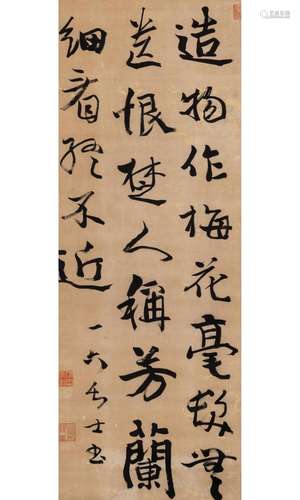 造物作梅花毫髮無
遺恨楚人稱芳蘭
細看終不近
一六居士書